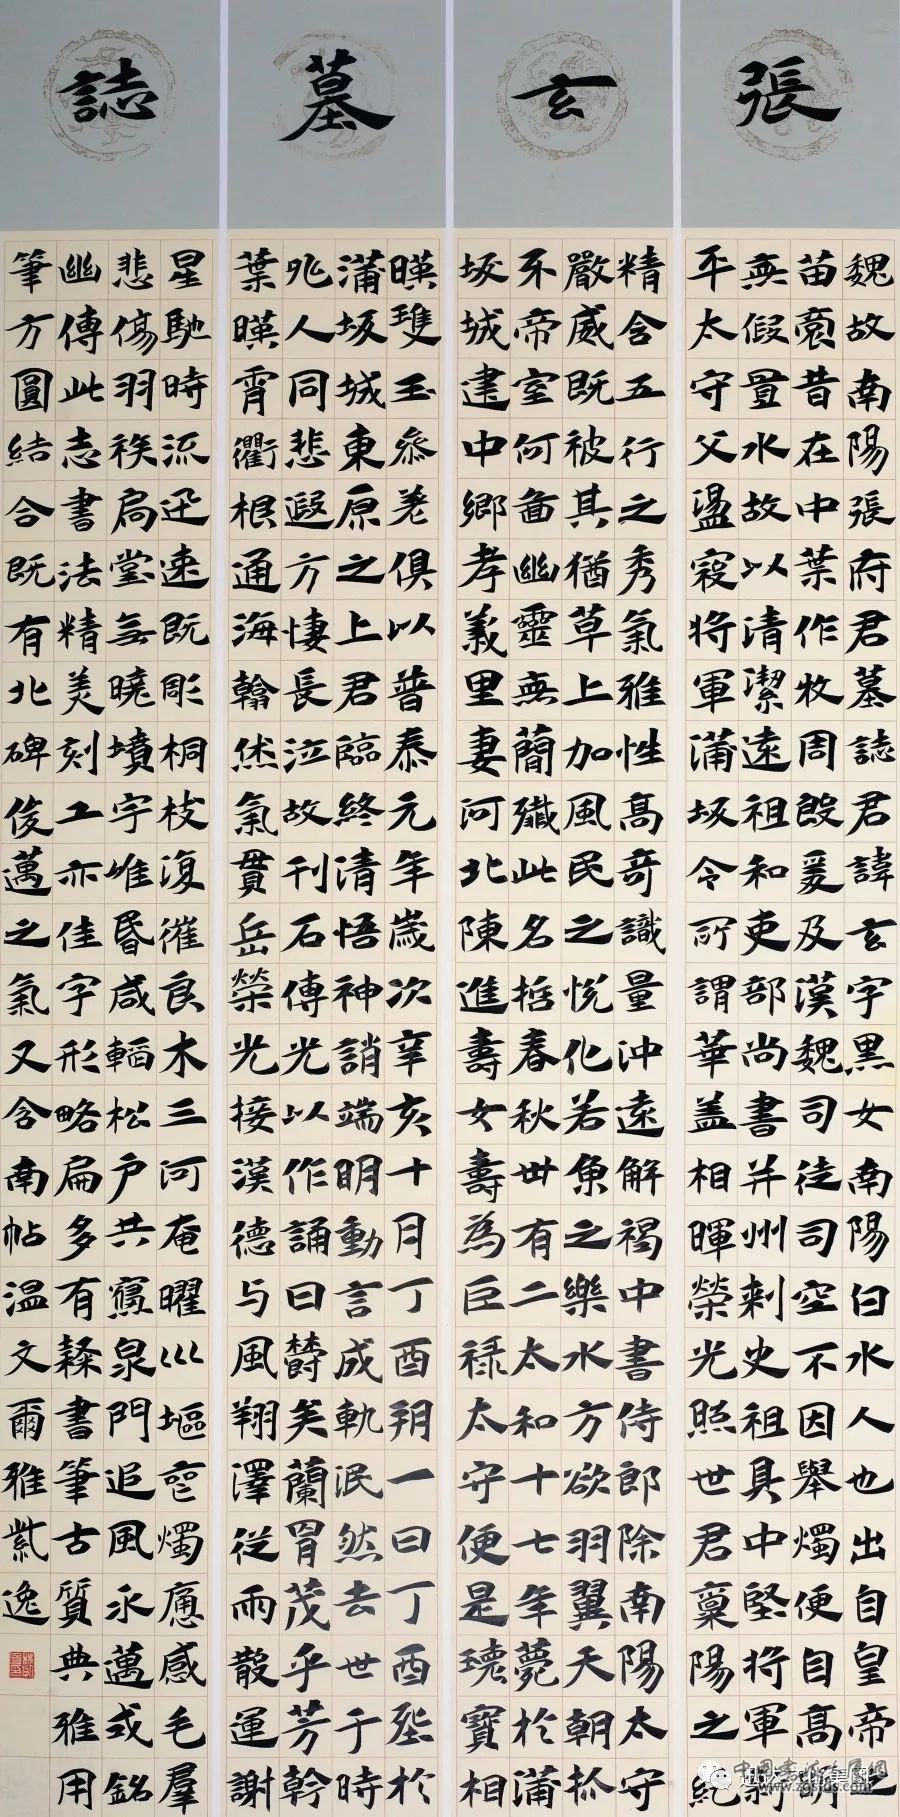 張玄墓誌
魏故南陽張府君墓誌君諱玄字黑女南陽白水人也出自皇帝之
苗裔昔在中葉作牧周殷爰及漢魏司徒司空不因舉燭便自高明
無假置水故以清潔遠祖和吏部尚書并州刺史祖具中堅將軍新
平太守父盪寇將軍蒲坂令所謂華蓋相暉榮光照世君稟陽之純
精含五行之秀氣雅性高奇識量沖遠解褐中書侍郎除南陽太守
嚴威既被其猶草上加風民之悅化若魚之樂水方欲羽翼天朝抓
牙帝室何啚幽靈無簡殲此名哲春秋卅有二太和十七年薨於蒲
坂城建中鄉孝義里妻河北陳進壽女壽為巨祿太守便是瓌寶相
暎雙玉參差俱以普泰元年歲次辛亥十月丁酉朔一日丁酉塟於
蒲坂城東原之上君臨終清悟神誚端明動言成軌泯然去世于時
兆人同悲遐方悽長泣故刊石傳光以作誦曰欝矣蘭冑茂乎芳幹
葉暎霄衢根通海翰然氣貫岳榮光接漢德与風翔澤從雨散運謝
星馳時流迅速既彫桐枝復摧良木三河奄曜巛塸燭痛感毛羣
悲傷羽族扃堂無曉墳宇唯昏咸韜松戶共寢泉門追風永邁式銘
幽傳此志書法精美刻工亦佳字形略扁多有隸書筆古質典雅用
筆方圓結合既有北碑俊邁之氣又含南帖溫文爾雅紫逸